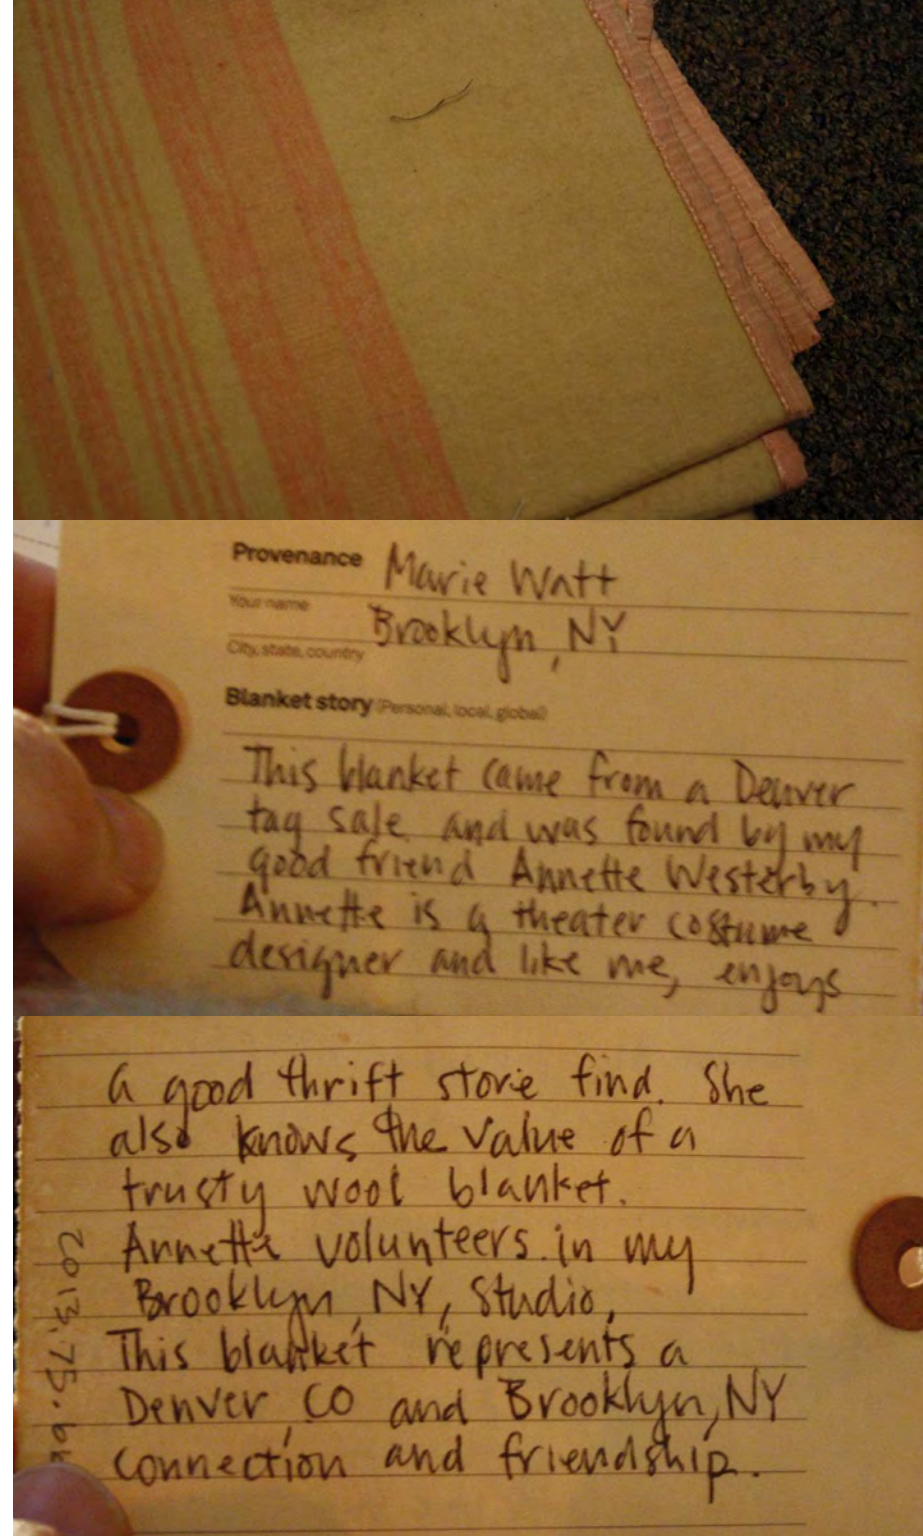 Provenance Marie Watt
Your name
Brooklyn, NY
City, state, country
Blanket story (Personal, local, global)
This blanket came from a Denver
tag sale and was found by my
good friend Annette Westerby.
Annette is a theater costume
designer and like me, enjoys
a good thrift store find. She
also knows the value of a
trusty wool blanket.
Annette volunteers in my
Brooklyn, NY, Studio.
This blanket represents a
Denver, CO and Brooklyn, NY
connection and friendship.